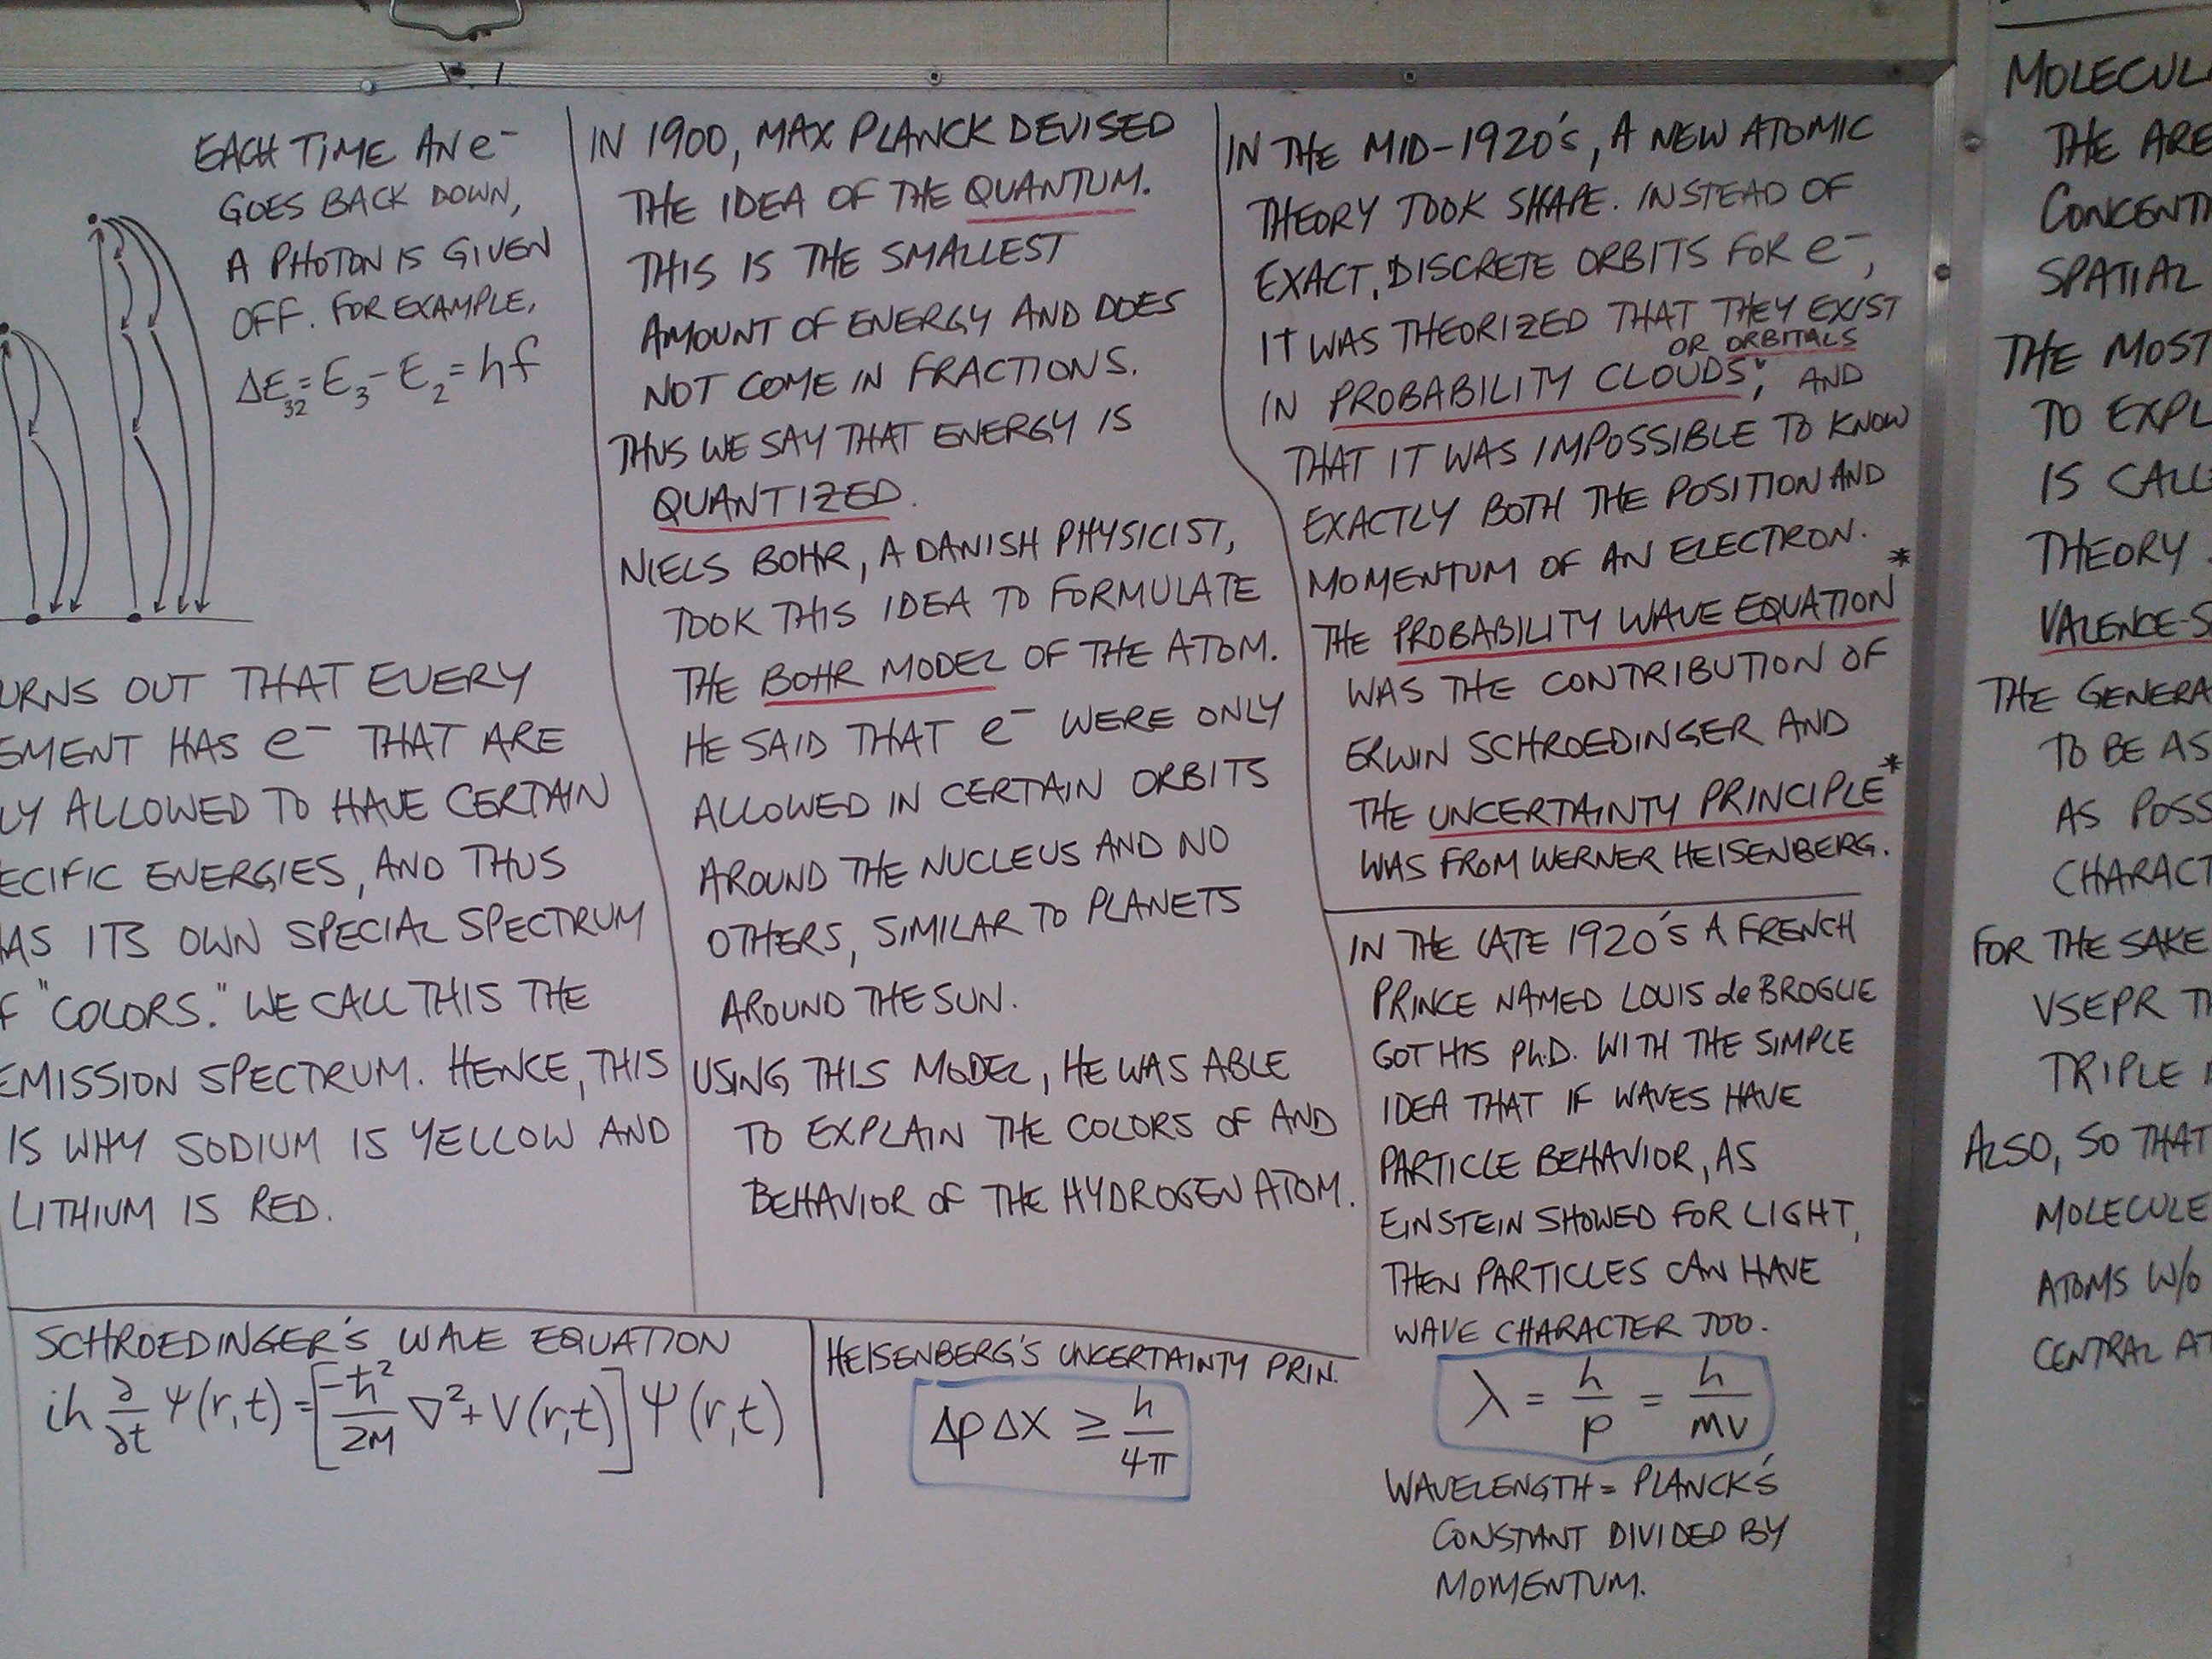 EACH TIME AN e⁻
GOES BACK DOWN,
A PHOTON IS GIVEN
OFF. FOR EXAMPLE,
ΔE₃₂ = E₃ - E₂ = hf
URNS OUT THAT EVERY
EMENT HAS e⁻ THAT ARE
LY ALLOWED TO HAVE CERTAIN
ECIFIC ENERGIES, AND THUS
AS ITS OWN SPECIAL SPECTRUM
F "COLORS." WE CALL THIS THE
EMISSION SPECTRUM. HENCE, THIS
IS WHY SODIUM IS YELLOW AND
LITHIUM IS RED.
IN 1900, MAX PLANCK DEVISED
THE IDEA OF THE QUANTUM.
THIS IS THE SMALLEST
AMOUNT OF ENERGY AND DOES
NOT COME IN FRACTIONS.
THUS WE SAY THAT ENERGY IS
QUANTIZED.
NIELS BOHR, A DANISH PHYSICIST,
TOOK THIS IDEA TO FORMULATE
THE BOHR MODEL OF THE ATOM.
HE SAID THAT e⁻ WERE ONLY
ALLOWED IN CERTAIN ORBITS
AROUND THE NUCLEUS AND NO
OTHERS, SIMILAR TO PLANETS
AROUND THE SUN.
USING THIS MODEL, HE WAS ABLE
TO EXPLAIN THE COLORS OF AND
BEHAVIOR OF THE HYDROGEN ATOM.
IN THE MID-1920's, A NEW ATOMIC
THEORY TOOK SHAPE. INSTEAD OF
EXACT, DISCRETE ORBITS FOR e⁻,
IT WAS THEORIZED THAT THEY EXIST
OR ORBITALS
IN PROBABILITY CLOUDS, AND
THAT IT WAS IMPOSSIBLE TO KNOW
EXACTLY BOTH THE POSITION AND
MOMENTUM OF AN ELECTRON.
THE PROBABILITY WAVE EQUATION*
WAS THE CONTRIBUTION OF
ERWIN SCHROEDINGER AND
THE UNCERTAINTY PRINCIPLE*
WAS FROM WERNER HEISENBERG.
IN THE LATE 1920's A FRENCH
PRINCE NAMED LOUIS de BROGLIE
GOT HIS Ph.D. WITH THE SIMPLE
IDEA THAT IF WAVES HAVE
PARTICLE BEHAVIOR, AS
EINSTEIN SHOWED FOR LIGHT,
THEN PARTICLES CAN HAVE
WAVE CHARACTER TOO.
λ = h/p = h/mv
WAVELENGTH = PLANCK'S
CONSTANT DIVIDED BY
MOMENTUM.
SCHROEDINGER'S WAVE EQUATION
iħ ∂/∂t Ψ(r,t) = [-ħ²/2M ∇² + V(r,t)] Ψ(r,t)
HEISENBERG'S UNCERTAINTY PRIN.
Δp Δx ≥ h/4π
MOLECUL
THE ARE
CONCENT
SPATIAL
THE MOST
TO EXPL
IS CALL
THEORY.
VALENCE-S
THE GENERA
TO BE AS
AS POSS
CHARACT
FOR THE SAKE
VSEPR TH
TRIPLE
ALSO, SO THAT
MOLECULE
ATOMS W/O
CENTRAL AT